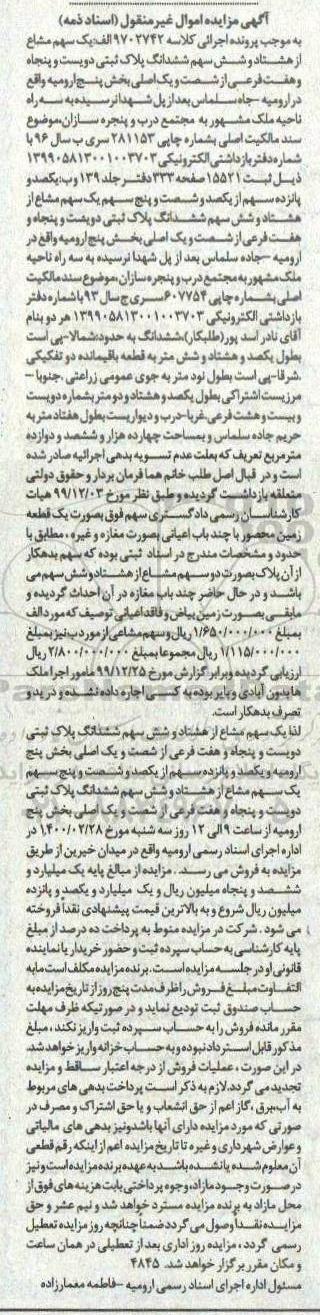 آگهی مزایده اموال غیر منقول (اسناد ذمه)
به موجب پرونده اجرائی کلاسه ۹۷۰۲۷۴۲ الف:یک سهم مشاع
از هشتاد و شش سهم ششدانگ پلاک ثبتی دویست و پنجاه
و هفت فرعی از شصت و یک اصلی بخش پنج ارومیه واقع
در ارومیه -جاده سلماس بعد از پل شهدا نرسیده به سه راه
ناحیه ملک مشهور به مجتمع درب و پنجره سازان،موضوع
سند مالکیت اصلی بشماره چاپی ۲۸۱۱۵۳ سری ب سال ۹۶ با
شماره دفتر بازداشتی الکترونیکی ۱۳۹۹۰۵۸۱۳۰۰۱۰۰۳۷۰۳
ذیل ثبت ۱۵۵۲۱ صفحه ۳۳۳ دفتر جلد ۱۳۹ و ب:یکصدو
پانزده سهم از یکصد و شصت و پنج سهم یک سهم مشاع از
هشتاد و شش سهم ششدانگ پلاک ثبتی دویست و پنجاه و
هفت فرعی از شصت و یک اصلی بخش پنج ارومیه واقع در
ارومیه -جاده سلماس بعد از پل شهدا نرسیده به سه راه ناحیه
ملک مشهور به مجتمع درب و پنجره سازان،موضوع سند مالکیت
اصلی بشماره چاپی ۶۰۷۷۵۴ سری ج سال ۹۳ با شماره دفتر
بازداشتی الکترونیکی ۱۳۹۹۰۵۸۱۳۰۰۱۰۰۳۷۰۳ هر دو بنام
آقای نادر اسد پور(طلبکار)،ششدانگ به حدود:شمالا-پی است
بطول یکصد و هشتاد و شش متر به قطعه باقیمانده دو تفکیکی
.شرقا-پی است بطول نود متر به جوی عمومی زراعتی .جنوبا -
مرزیست اشتراکی بطول یکصد و هشتاد و دو متر بشماره دویست
و بیست و هشت فرعی.غربا-درب و دیواریست بطول هفتاد متر به
حریم جاده سلماس و بمساحت چهارده هزار و ششصد و دوازده
مترمربع تعریف که بعلت عدم تسویه بدهی اجرائیه صادر شده
است و در قبال اصل طلب خانم هما فرمان بردار و حقوق دولتی
متعلقه بازداشت گردیده و طبق نظر مورخ ۹۹/۱۲/۰۳ هیات
کارشناسان رسمی دادگستری سهم فوق بصورت یک قطعه
زمین محصور با چند باب اعیانی بصورت مغازه و غیره ، مطابق با
حدود و مشخصات مندرج در اسناد ثبتی بوده که سهم بدهکار
از آن پلاک بصورت دو سهم مشاع از هشتاد و شش سهم می
باشد و در حال حاضر چند باب مغازه در آن احداث گردیده و
مابقی بصورت زمین بیاض و فاقد اعیانی توصیف که مورد الف
بمبلغ ۱/۶۵۰/۰۰۰/۰۰۰ ریال و سهم مشاعی از مورد ب نیز بمبلغ
۱/۱۱۵/۰۰۰/۰۰۰ ریال مجموعا بمبلغ ۲/۸۰۰/۰۰۰/۰۰۰ ریال
ارزیابی گردیده و برابر گزارش مورخ ۹۹/۱۲/۲۵ مامور اجرا ملک
ها بدون آبادی و بایر بوده به کسی اجاره داده نشده و در ید و
تصرف بدهکار است.
لذا یک سهم مشاع از هشتاد و شش سهم ششدانگ پلاک ثبتی
دویست و پنجاه و هفت فرعی از شصت و یک اصلی بخش پنج
ارومیه و یکصد و پانزده سهم از یکصد و شصت و پنج سهم
یک سهم مشاع از هشتاد و شش سهم ششدانگ پلاک ثبتی
دویست و پنجاه و هفت فرعی از شصت و یک اصلی بخش پنج
ارومیه از ساعت ۹ الی ۱۲ روز سه شنبه مورخ ۱۴۰۰/۰۲/۲۸ در
اداره اجرای اسناد رسمی ارومیه واقع در میدان خیرین از طریق
مزایده به فروش می رسد . مزایده از مبالغ پایه یک میلیارد و
ششصد و پنجاه میلیون ریال و یک میلیارد و یکصد و پانزده
میلیون ریال شروع و به بالاترین قیمت پیشنهادی نقدا فروخته
می شود . شرکت در مزایده منوط به پرداخت ده درصد از مبلغ
پایه کارشناسی به حساب سپرده ثبت و حضور خریدار یا نماینده
قانونی او در جلسه مزایده است. برنده مزایده مکلف است مابه
التفاوت مبلغ فروش را ظرف مدت پنج روز از تاریخ مزایده به
حساب صندوق ثبت تودیع نماید و در صورتیکه ظرف مهلت
مقرر مانده فروش را به حساب سپرده ثبت واریز نکند ، مبلغ
مذکور قابل استرداد نبوده و به حساب خزانه واریز خواهد شد.
در این صورت ، عملیات فروش از درجه اعتبار ساقط و مزایده
تجدید می گردد.لازم به ذکر است پرداخت بدهی های مربوط
به آب،برق ،گاز اعم از حق انشعاب و یا حق اشتراک و مصرف در
صورتی که مورد مزایده دارای آنها باشد و نیز بدهی های مالیاتی
و عوارض شهرداری و غیره تا تاریخ مزایده اعم از اینکه رقم قطعی
آن معلوم شده یا نشده باشد به عهده برنده مزایده است و نیز
در صورت وجود مازاد، وجوه پرداختی بابت هزینه های فوق از
محل مازاد به برنده مزایده مسترد خواهد شد و نیم عشر و حق
مزایده نقدا وصول می گردد ضمنا چنانچه روز مزایده تعطیل
رسمی گردد ، مزایده روز اداری بعد از تعطیلی در همان ساعت
و مکان مقرر برگزار خواهد شد. ۴۸۴۵
مسئول اداره اجرای اسناد رسمی ارومیه -فاطمه معمارزاده